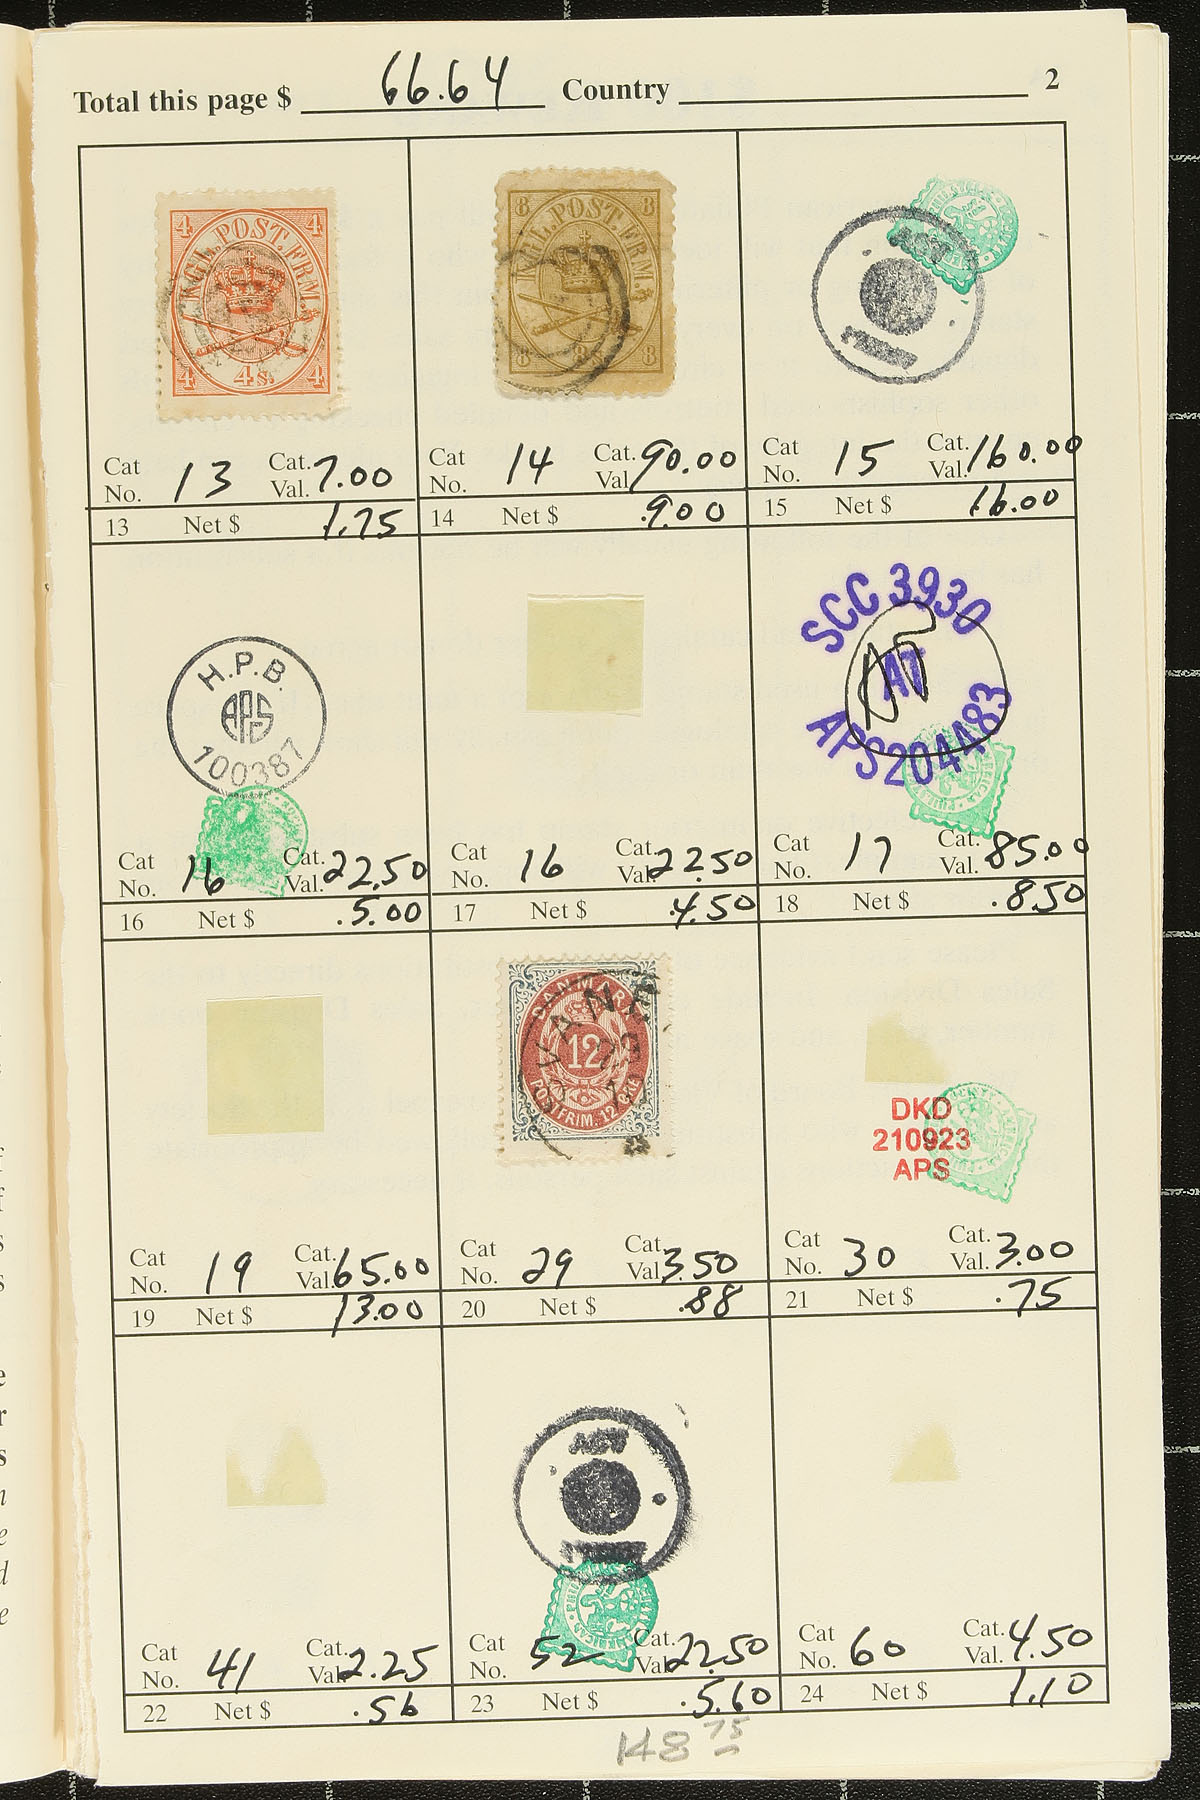 Total this page $ 66.64 Country 2
4 4
KGL. POST. FRM.
4 4 s. 4
8 8
KGL. POST. FRM.
8 8 s. 8
Cat No. 13 Cat. Val. 7.00
13 Net $ 1.75
Cat No. 14 Cat. Val. 90.00
14 Net $ 9.00
Cat No. 15 Cat. Val. 160.00
15 Net $ 16.00
H.P.B.
APS
100387
SCC 3930
AT
APS204483
Cat No. 16 Cat. Val. 22.50
16 Net $ .5.00
Cat No. 16 Cat. Val. 22.50
17 Net $ .4.50
Cat No. 17 Cat. Val. 85.00
18 Net $ .8.50
DANMARK
12
POSTFRIM. 12 ØRE
DKD
210923
APS
Cat No. 19 Cat. Val. 65.00
19 Net $ 13.00
Cat No. 29 Cat. Val. 3.50
20 Net $ .88
Cat No. 30 Cat. Val. 3.00
21 Net $ .75
Cat No. 41 Cat. Val. 2.25
22 Net $ .56
Cat No. 52 Cat. Val. 22.50
23 Net $ .5.60
Cat No. 60 Cat. Val. 4.50
24 Net $ 1.10
148 75